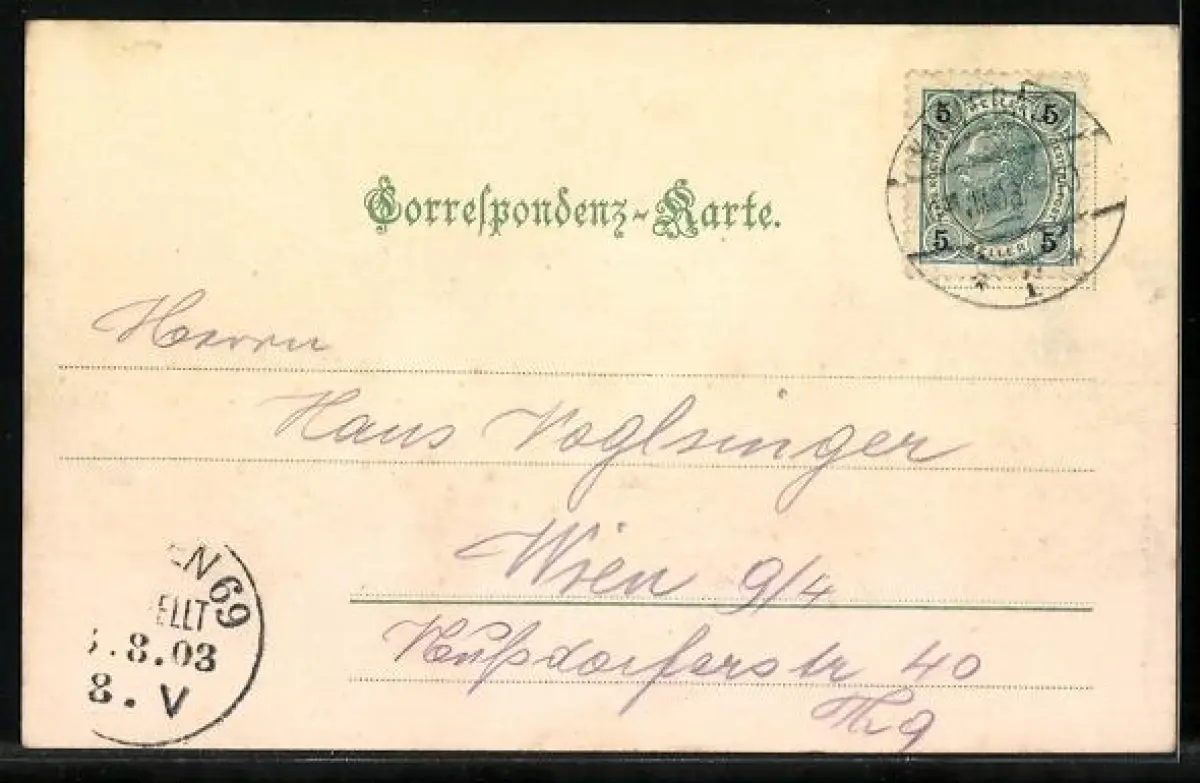 Correspondenz-Karte.
5 5
5 5
HELLER
1
Herrn
Hans Voglsinger
Wien 9/4
Nußdorferstr 40
EN 69
ELLT
.8.03
8. V